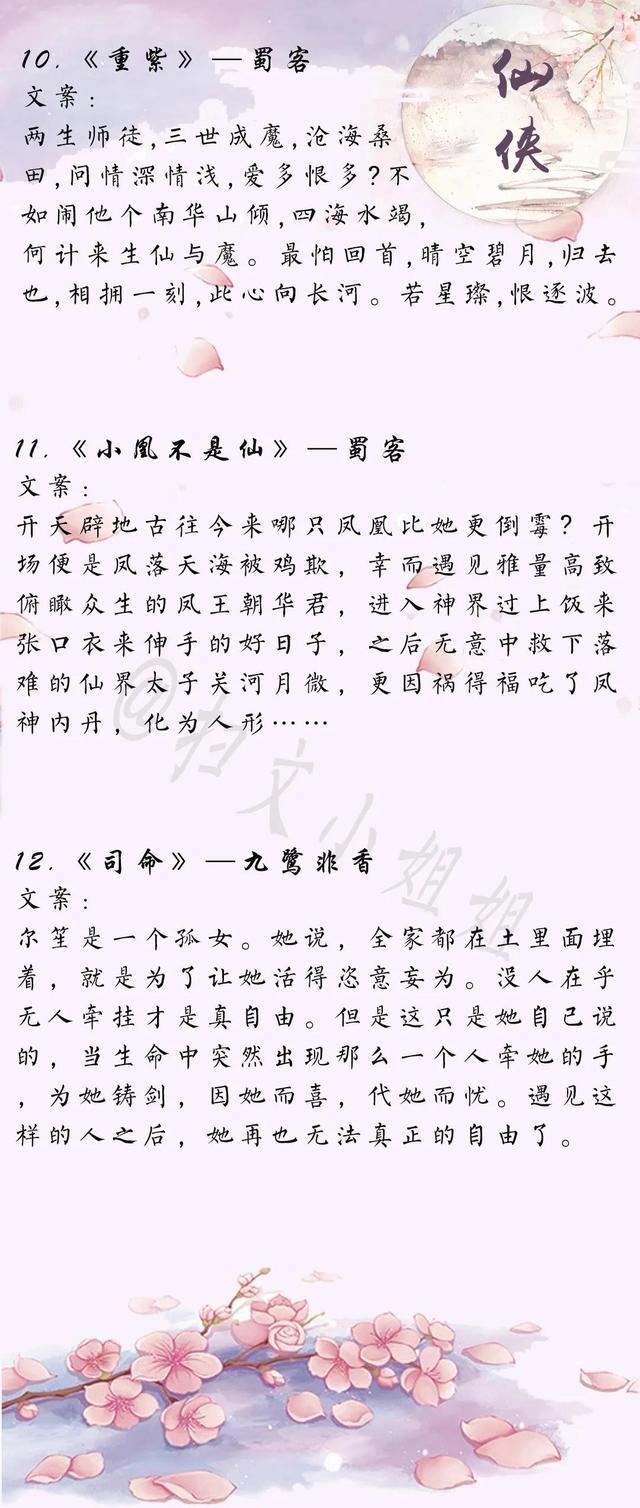 仙侠
10.《重紫》—蜀客
文案：
两生师徒,三世成魔,沧海桑
田,问情深情浅,爱多恨多?不
如闹他个南华山倾,四海水竭,
何计来生仙与魔。最怕回首,晴空碧月,归去
也,相拥一刻,此心向长河。若星璨,恨逐波。
11.《小凰不是仙》—蜀客
文案：
开天辟地古往今来哪只凤凰比她更倒霉？开
场便是凤落天海被鸡欺，幸而遇见雅量高致
俯瞰众生的凤王朝华君，进入神界过上饭来
张口衣来伸手的好日子，之后无意中救下落
难的仙界太子关河月微，更因祸得福吃了凤
神内丹，化为人形……
@扫文小姐姐
12.《司命》—九鹭非香
文案：
尔笙是一个孤女。她说，全家都在土里面埋
着，就是为了让她活得恣意妄为。没人在乎
无人牵挂才是真自由。但是这只是她自己说
的，当生命中突然出现那么一个人牵她的手
，为她铸剑，因她而喜，代她而忧。遇见这
样的人之后，她再也无法真正的自由了。